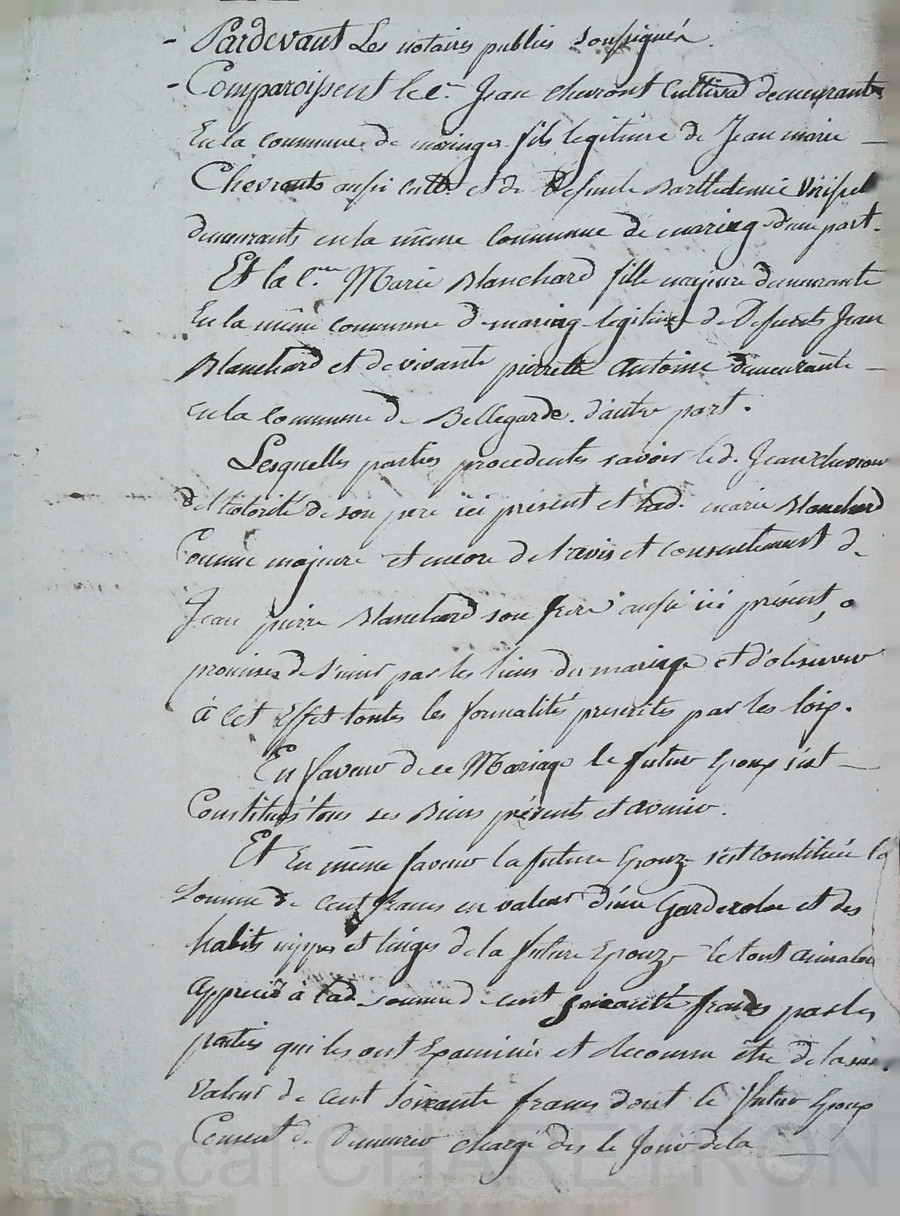 - Pardevant Les notaires publics soussignés.
- Comparoissent le c.n Jean chevront Cultivat demeurant
En la commune de maringes fils legitime de Jean marie
Chevronts aussi cultr et de Defunte Barthelemie
demeurants en la même commune de maring d'une part.
Et la c.enne Marie Blanchard fille majeure demeurante
En la même commune de maring legitime de Defunts Jean
Blanchard et de vivante pierrette Antoine demeurante
en la commune de Bellegarde. d'autre part.
Lesquelles parties procedentes savoir led. Jean chevron
de l'otorité de son pere ici présent et lad. marie Blanchard
Comme majeure et encore de l'avis et consentement de
Jean pierre Blanchard son frere aussi ici présent,
promises de s'unir par les liens du mariage et d'observer
à cet Effet toutes les formalités prescrites par les loix.
En faveur de ce Mariage le futur Epoux s'est
Constitué tous ses Biens présents et avenir.
Et En même faveur la future Epouze s'est constituée la
Somme de cent francs en valeur d'une Garderobe et des
habits nippes et linges de la future Epouze le tout
apprecié à lad. somme de cent soixante francs par les
parties qui les ont Examinés et reconnu être de la
valeur de cent soixante francs dont le futur Epoux
Consent de Demeurer chargé dès le Jour de la
Pascal CHAREYRON